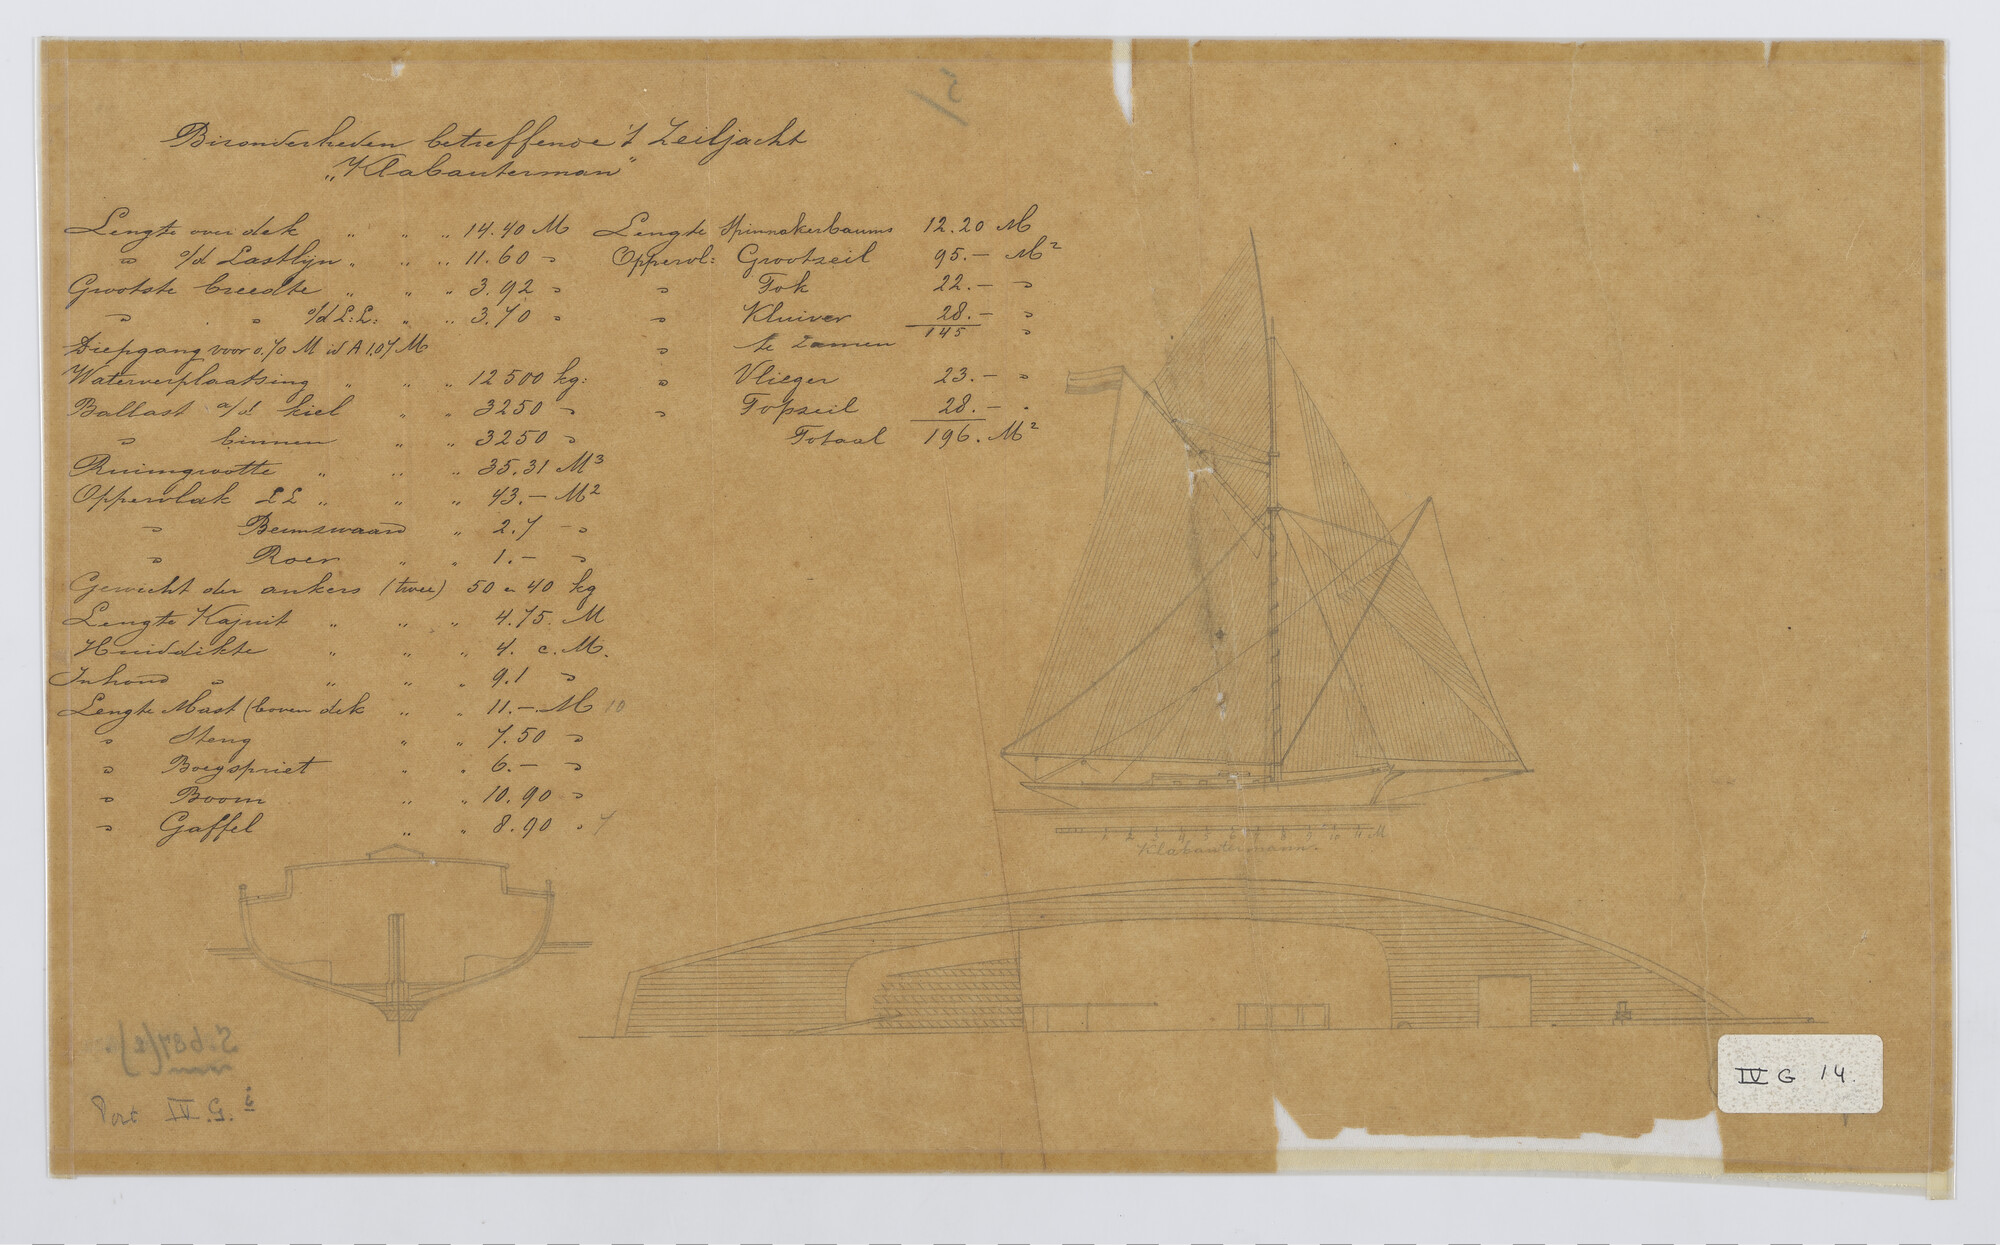 Bizonderheden betreffende 't Zeiljacht
„Klabauterman"
Lengte over dek " " " 14.40 M
" o/d Lastlijn " " " 11.60 "
Grootste breedte " " " 3.92 "
" " o/d L:L: " " 3.70 "
Diepgang voor 0.70 M id A 1.07 M
Waterverplaatsing " " " 12500 kg:
Ballast a/d kiel " " 3250 "
" binnen " " 3250 "
Ruimgrootte " " " 35.31 M3
Oppervlak LL " " " 43.— M2
" Beunzwaard " 2.7 — "
" Roer " " 1.— "
Gewicht der ankers (twee) 50 en 40 kg
Lengte Kajuit " " " 4.75. M
Huiddikte " " " 4. c.M.
Inhoud " " " " 9.1 "
Lengte Mast (boven dek " " 11.—.M 10
" Steng " " 7.50 "
" Boegspriet " " 6.— "
" Boom " " 10.90 "
" Gaffel " " 8.90 " 7
Lengte Spinnakerbooms 12.20 M
Oppervl: Grootzeil 95.— M2
" Fok 22.— "
" Kluiver 28.— "
" te zamen 145 "
" Vlieger 23.— "
" Topzeil 28.— "
Totaal 196. M2
1 2 3 4 5 6 7 8 9 10 11 M
Klabautermann.
5
S.687(2).
Port IV.G.
IV G 14.